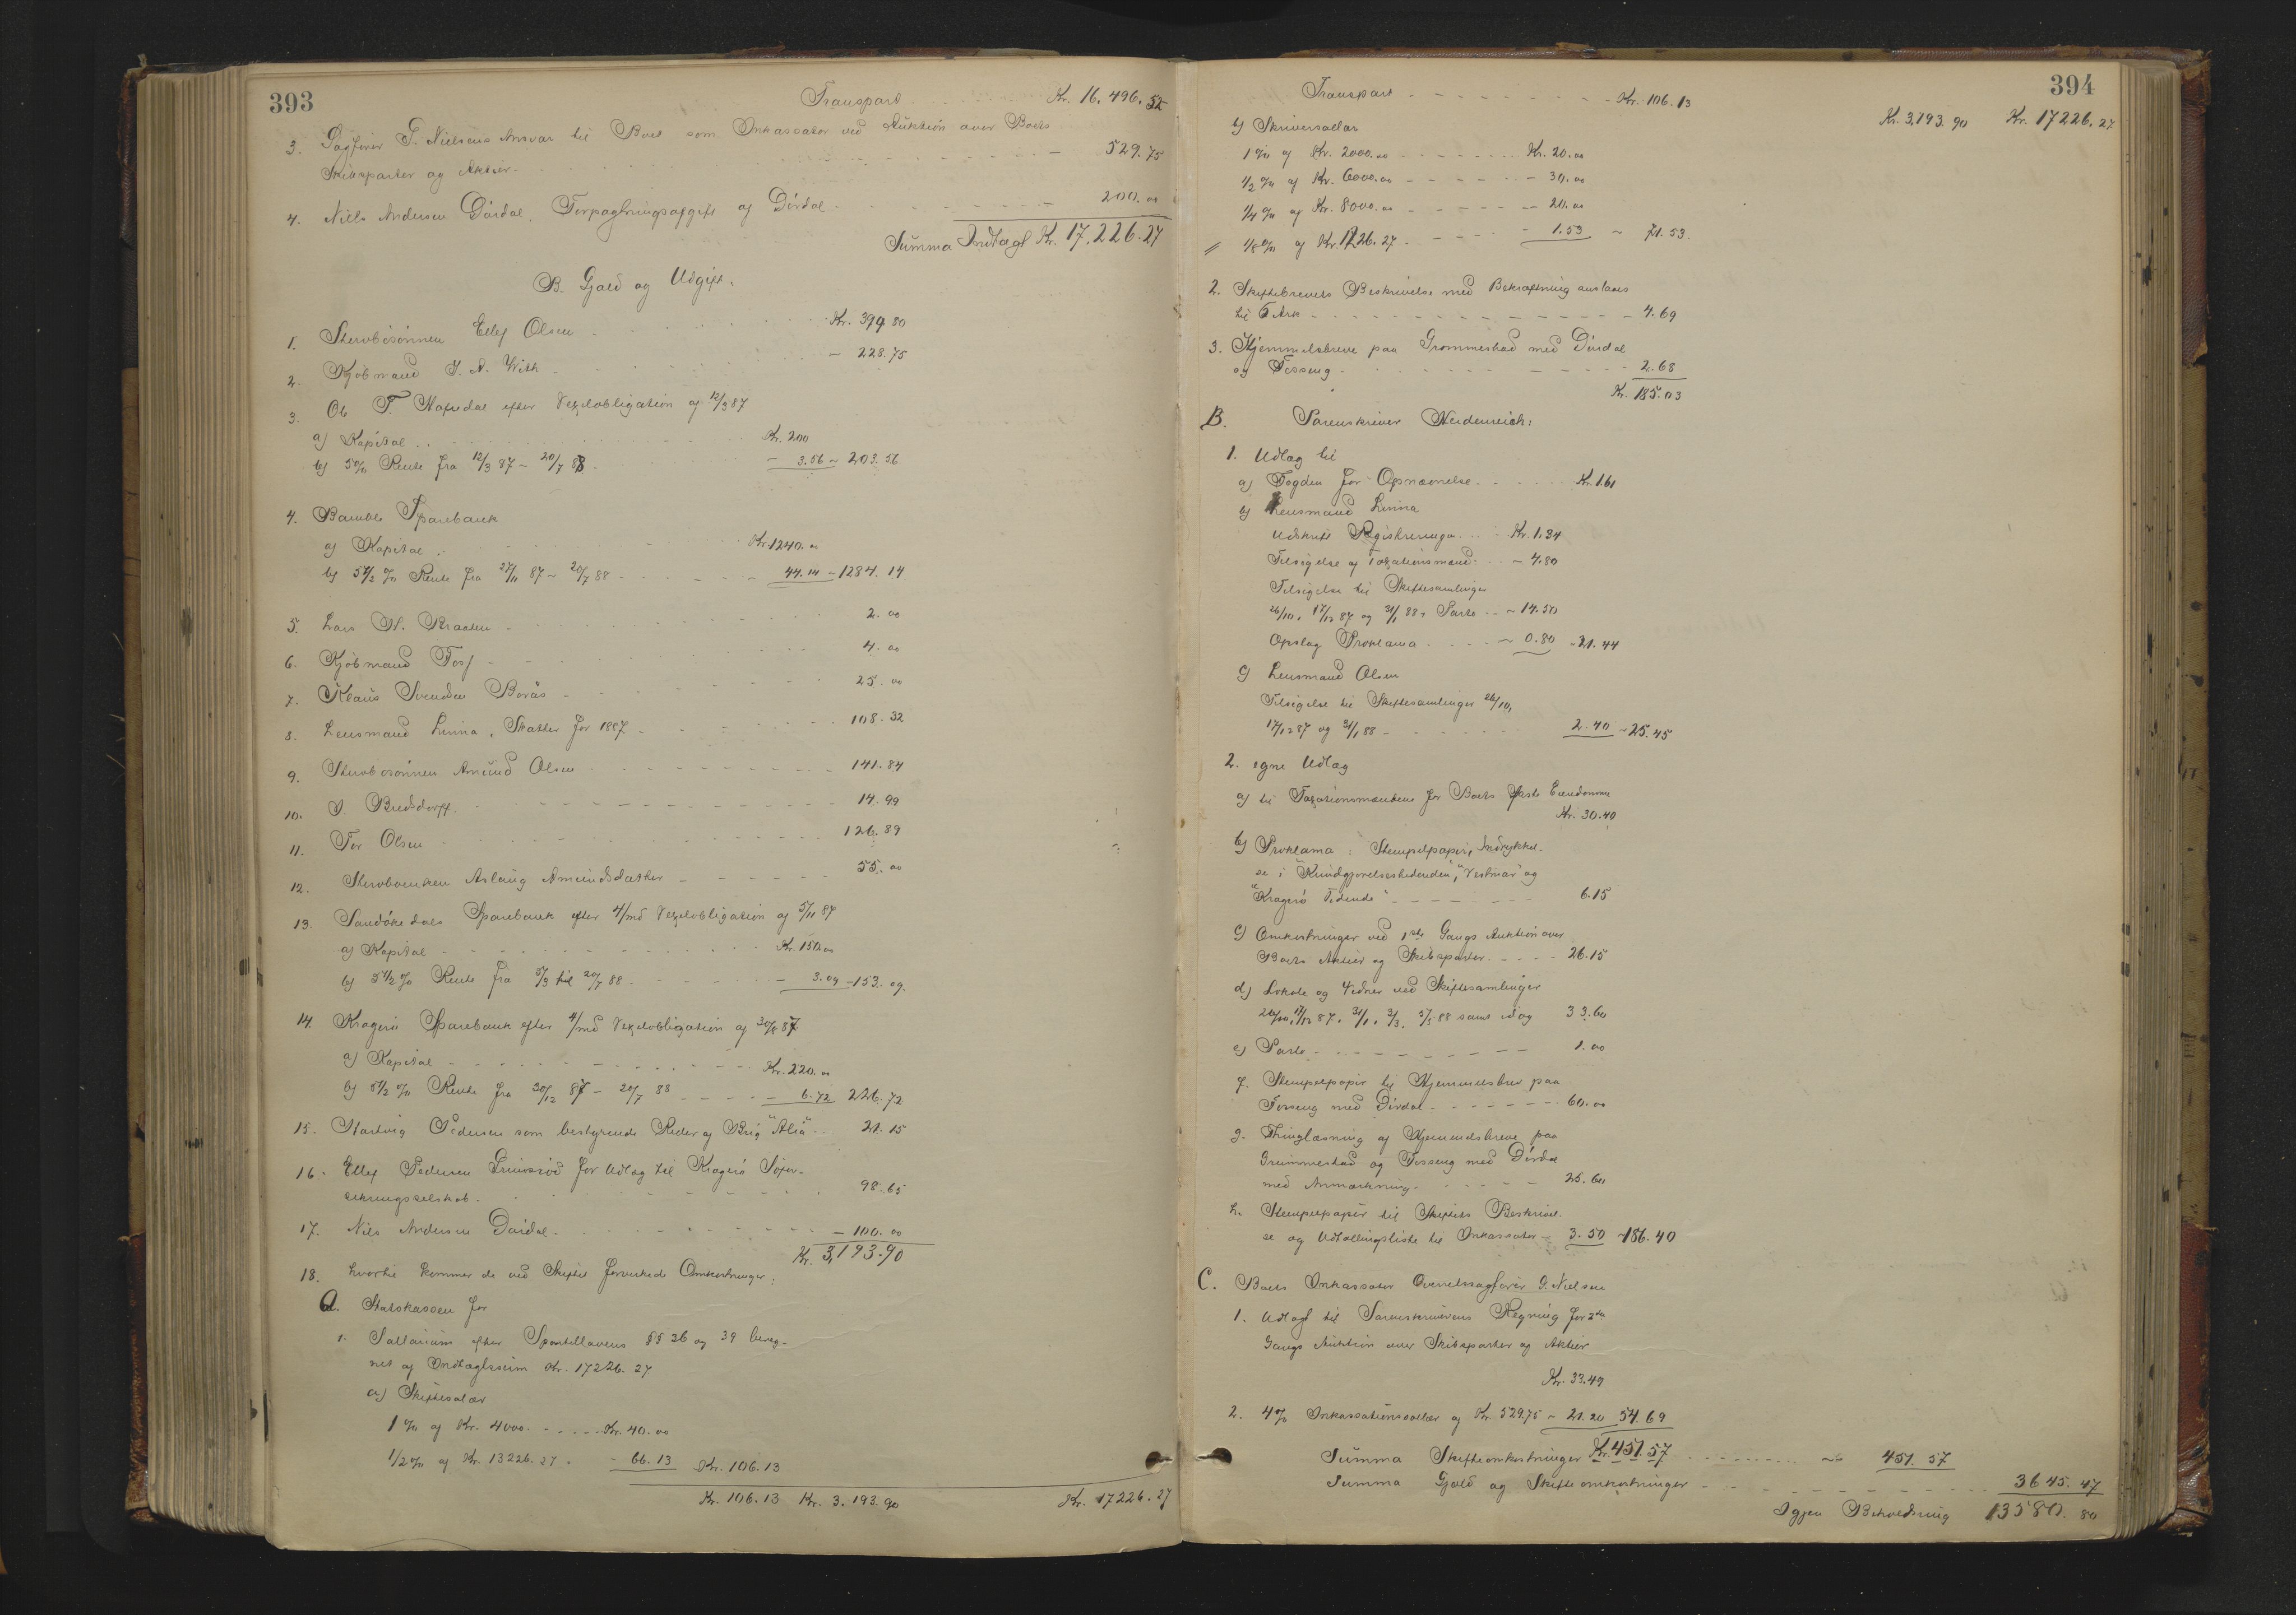 393
Transport Kr. 16.496.52
3. Sagfører G. Nielsens Ansvar til Boet som Inkassator ved Auktion over Boets
Skibsparter og Aktier - 529.75
4. Niels Andersen Dørdal, Forpagtningsafgift af Dørdal - 200.00
Summa Indtægt Kr. 17.226.27
B. Gjæld og Udgift.
1. Stervbosønnen Ellef Olsen Kr. 399 80
2. Kjøbmand J. A. With - 228.75
3. Ole T. Nafredal efter Vexelobligation af 12/3 87
a) Kapital Kr. 200
b) 5% Rente fra 12/3 87 - 20/7 88 - 3.56 - 203.56
4. Bamble Sparebank
a) Kapital Kr. 1240.00
b) 5 1/2 % Rente fra 27/11 87 - 20/7 88 - 44.14 - 1284.14
5. Lars H. Braaten 2.00
6. Kjøbmand Foss 4.00
7. Klaus Svendsen Borås 25.00
8. Lensmand Linna, Skatter for 1887 - 108.32
9. Stervbosønnen Amund Olsen - 141.84
10. J. Bredsdorff 14.99
11. Tor Olsen 126.89
12. Stervboenken Aslaug Amundsdatter 55.00
13. Sandøkedals Sparebank efter 4/md Vexelobligation af 5/11 87
a) Kapital Kr. 150.00
b) 5 1/2 % Rente fra 5/3 til 20/7 88 - 3.09 - 153.09
14. Kragerø Sparebank efter 4/md Vexelobligation af 30/8 87
a) Kapital Kr. 220.00
b) 5 1/2 % Rente fra 30/12 87 - 20/7 88 - 6.72 226.72
15. Hartvig Pedersen som bestyrende Reder af Brig "Alia" 21.15
16. Ellef Pedersen for Udlæg til Kragerø Søfor-
sikringsselskab 98.65
17. Nils Andersen Dørdal - 100.00
Kr. 3,193.90
18. hvortil kommer de ved Skiftet forvirkede Omkostninger:
A. Statskassen for
1. Sallarium efter Sportellovens §§ 36 og 39 bereg-
net af Indtægtssum Kr. 17226.27
a) Skiftesalær
1 % af Kr. 4000. Kr. 40.00
1/2 % af Kr. 13226.27 - 66.13 Kr. 106.13
Kr. 106.13 Kr. 3.193.90 Kr. 17226.27
394
Transport Kr. 106.13 Kr. 3,193.90 Kr. 17226.27
b) Skriversallar
1 % af Kr. 2000.00 Kr. 20.00
1/2 % af Kr. 6000.00 - 30.00
1/4 % af Kr. 8000.00 - 20.00
1/8 % af Kr. 1226.27 - 1.53 - 71.53
2. Skiftebrevets Beskrivelse med Bekræftning anslaaes
til 6 Ark 4.69
3. Hjemmelsbreve paa Grommestad med Dørdal
og Fosseng 2.68
Kr. 185.03
B. Sorenskriver Heidenreich:
1. Udlæg til
a) Fogden for Opnævnelse Kr. 1.61
b) Lensmand Linna
Udskrift Registreringen Kr. 1.34
Tilsigelse af Taxationsmænd - 4.80
Tilsigelse til Skiftesamlinger
26/10, 17/12 87 og 31/1 88, Porto - 14.50
Opslag Proklama - 0.80 - 21.44
c) Lensmand Olsen
Tilsigelse til Skiftesamlinger 26/10,
17/12 87 og 31/1 88 2.40 - 25.45
2. egne Udlæg
a) til Taxationsmændene for Boets faste Eiendomme
Kr. 30.40
b) Proklama: Stempelpapir, Indrykkel-
se i "Kundgjørelsestidenden", "Vestmar" og
"Kragerø Tidende" 6.15
c) Omkostninger ved 1ste Gangs Auktion over
Boets Aktier og Skibsparter 26.15
d) Lokale og Vidner ved Skiftesamlinger
26/10, 17/12 87, 31/1, 3/3, 5/5 88 samt idag 33.60
e) Porto 1.00
f. Stempelpapir til Hjemmelsbrev paa
Fosseng med Dørdal 60.00
g. Thinglæsning af Hjemmelsbreve paa
Grummestad og Fosseng med Dørdal
med Anmærkning 25.60
h. Stempelpapir til Skiftets Beskrivel-
se og Udtællingsliste til Inkassator 3.50 - 186.40
C. Boets Inkassator Overretssagfører G. Nielsen
1. Udlagt til Sorenskriverens Regning for 2den
Gangs Auktion over Skibsparter og Aktier
Kr. 33.49
2. 4% Inkassationssallær af Kr. 529.75 - 21.20 54.69
Summa Skifteomkostninger Kr. 451.57 - 451.57
Summa Gjæld og Skifteomkostninger 3645.47
Igjen Beholdning 13580.80